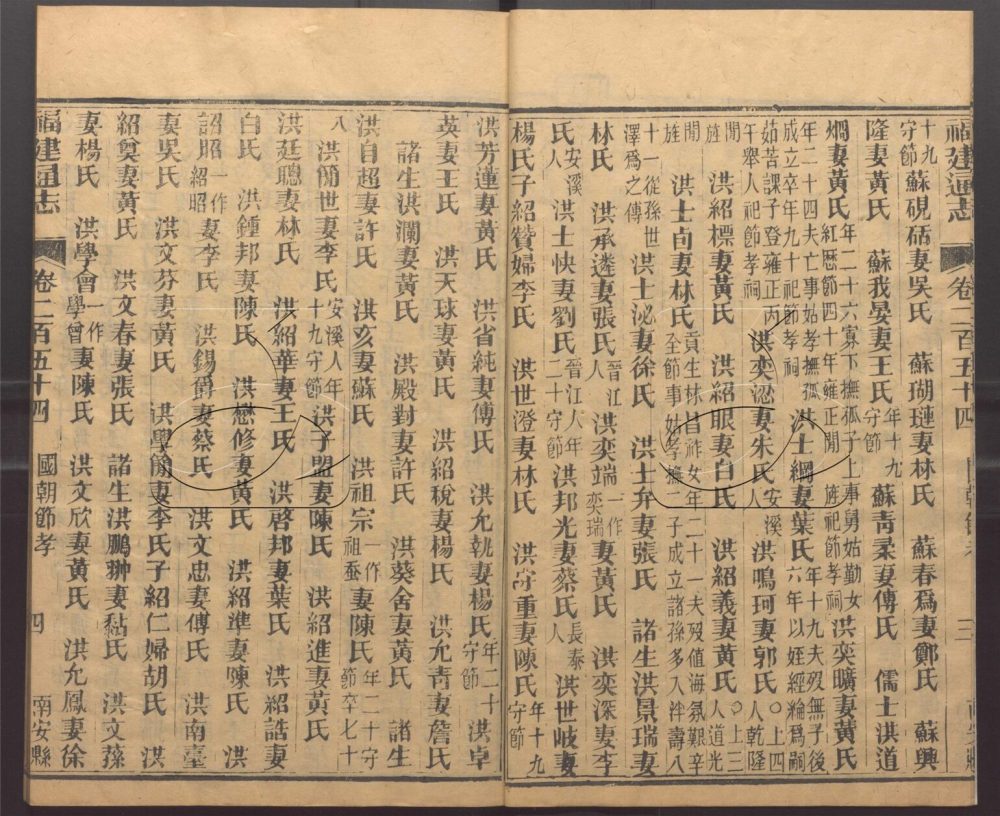 福建通志 卷二百五十四 三
十九守節 蘇硯砳妻吳氏 蘇瑚璉妻林氏 蘇春爲妻鄭氏 蘇興
隆妻黃氏 蘇我晏妻王氏年十九守節 蘇靑柔妻傅氏 儒士洪道
烱妻黃氏年二十六寡下撫孤子上事舅姑勤女紅歷節四十年雍正間旌祀節孝祠 洪奕曠妻黃氏
年二十四夫亡事姑孝撫孤成立卒年九十祀節孝祠 洪士綱妻葉氏年十九夫歿無子後六年以姪經綸爲嗣
茹苦課子登雍正丙午舉人祀節孝祠 洪奕認妻朱氏安溪人 洪鳴珂妻郭氏○上四人乾隆
間旌 洪紹標妻黃氏 洪紹眼妻白氏 洪紹義妻黃氏○上三人道光
間旌 洪士卣妻林氏貢生林昌祚女年二十一夫歿值海氛艱辛至節事姑孝撫二子成立諸孫多入泮壽八
十一從孫世澤爲之傳 洪士泌妻徐氏 洪士弁妻張氏 諸生洪景瑞妻
林氏 洪承遴妻張氏晉江人 洪奕端一作奕瑞妻黃氏 洪奕深妻李
氏安溪人 洪士快妻劉氏晉江人年二十守節 洪邦光妻蔡氏長泰人 洪世岐妻
楊氏子紹贊婦李氏 洪世澄妻林氏 洪守重妻陳氏年十九守節
洪芳蓮妻黃氏 洪省純妻傅氏 洪允執妻楊氏年二十守節 洪卓
英妻王氏 洪天球妻黃氏 洪紹稅妻楊氏 洪允靑妻詹氏
諸生洪瀾妻黃氏 洪殿對妻許氏 洪葵舍妻黃氏 諸生
洪自超妻許氏 洪亥妻蘇氏 洪祖宗一作祖蚕妻陳氏年二十守節卒七十
八 洪簡世妻李氏安溪人年十九守節 洪子盟妻陳氏 洪紹進妻黃氏
洪廷聰妻林氏 洪紹華妻王氏 洪啓邦妻葉氏 洪紹誥妻
白氏 洪鍾邦妻陳氏 洪懋修妻黃氏 洪紹準妻陳氏 洪
詔昭一作紹昭妻李氏 洪錫爵妻蔡氏 洪文忠妻傅氏 洪南臺
妻吳氏 洪文芬妻黃氏 洪學簡妻李氏子紹仁婦胡氏 洪
紹奠妻黃氏 洪文春妻張氏 諸生洪鵬翀妻黏氏 洪文蓀
妻楊氏 洪學會一作學曾妻陳氏 洪文欣妻黃氏 洪允鳳妻徐
福建通志 卷二百五十四 國朝節孝 四 南安縣